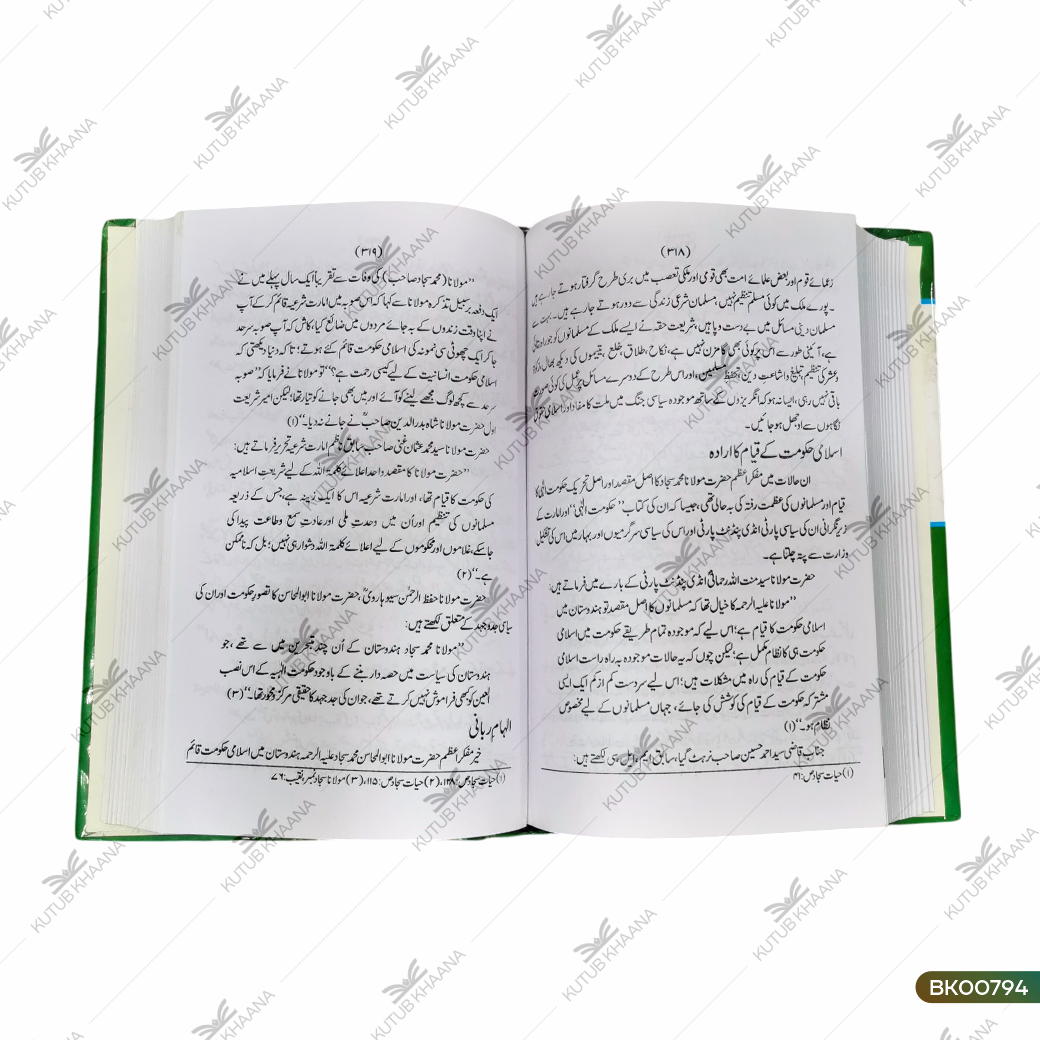 (۳۱۸)
زعمائے قوم اور بعض علمائے امت بھی قومی اور ملکی تعصب میں بری طرح گرفتار ہوتے جارہے ہیں
۔ پورے ملک میں کوئی مسلم تنظیم نہیں، مسلمان شرعی زندگی سے دور ہوتے جارہے ہیں۔ بہت سے
مسلمان دینی مسائل میں بے دست و پا ہیں، شریعت حقہ نے ایسے ملک کے مسلمانوں کو جو راہ بتائی
ہے، آئینی طور سے اس پر کوئی بھی گامزن نہیں ہے، نکاح، طلاق، خلع، یتیموں کی دیکھ بھال، زکوٰۃ
وعشر کی تنظیم، تبلیغ واشاعت دین، تحفظ مسلمین، اور اس طرح کے دوسرے مسائل پر عمل کی کوئی صورت
باقی نہیں رہی، ایسا نہ ہو کہ انگریزوں کے ساتھ موجودہ سیاسی جنگ میں ملت کا مفاد اور اسلامی حقوق
نگاہوں سے اوجھل ہو جائیں۔
اسلامی حکومت کے قیام کا ارادہ
ان حالات میں مفکر اعظم حضرت مولانا محمد سجاد کا اصل مقصد اور اصل تحریک حکومت الٰہی کا
قیام اور مسلمانوں کی عظمت رفتہ کی بہ حالی تھی، جیسا کہ ان کی کتاب ’’حکومت الٰہی‘‘ اور امارت کے
زیر نگرانی ان کی سیاسی پارٹی انڈی پنڈنٹ پارٹی اور اس کی سیاسی سرگرمیوں اور بہار میں اس کی تشکیل
وزارت سے پتہ چلتا ہے۔
حضرت مولانا سید منت اللہ رحمانیؒ انڈی پنڈنٹ پارٹی کے بارے میں فرماتے ہیں:
’’مولانا علیہ الرحمہ کا خیال تھا کہ مسلمانوں کا اصل مقصد تو ہندوستان میں
اسلامی حکومت کا قیام ہے؛ اس لیے کہ موجودہ تمام طریقے حکومت میں اسلامی
حکومت ہی کا نظام مکمل ہے؛ لیکن چوں کہ بہ حالات موجودہ بہ راہ راست اسلامی
حکومت کے قیام کی راہ میں مشکلات ہیں؛ اس لیے سردست کم از کم ایک ایسی
مشترکہ حکومت کے قیام کی کوشش کی جائے، جہاں مسلمانوں کے لیے مخصوص
نظام ہو۔‘‘(۱)
جناب قاضی سید احمد حسین صاحب نرہٹ گیا، سابق ایم، ایل سی لکھتے ہیں:
(۱) حیات سجاد ص:۴۱
(۳۱۹)
’’مولانا (محمد سجاد صاحب) کی وفات سے تقریباً ایک سال پہلے میں نے
ایک دفعہ بر سبیل تذکرہ مولانا سے کہا کہ اس صوبہ میں امارت شرعیہ قائم کر کے آپ
نے اپنا وقت زندوں کے بہ جائے مردوں میں ضائع کیا، کاش کہ آپ صوبہ سرحد
جا کر ایک چھوٹی سی نمونہ کی اسلامی حکومت قائم کئے ہوتے؛ تا کہ دنیا دیکھتی کہ
اسلامی حکومت انسانیت کے لیے کیسی رحمت ہے؟‘‘ تو مولانا نے فرمایا کہ ’’صوبہ
سرحد سے کچھ لوگ مجھے لینے کو آئے اور میں بھی جانے کو تیار تھا؛ لیکن امیر شریعت
اول حضرت مولانا شاہ بدر الدین صاحبؒ نے جانے نہ دیا۔‘‘(۱)
حضرت مولانا سید محمد عثمان غنی صاحب سابق ناظم امارت شرعیہ تحریر فرماتے ہیں:
’’حضرت مولانا کا مقصد واحد اعلائے کلمۃ اللہ کے لیے شریعت اسلامیہ
کی حکومت کا قیام تھا، اور امارت شرعیہ اس کا ایک زینہ ہے، جس کے ذریعہ
مسلمانوں کی تنظیم اور اُن میں وحدت ملی اور عادت سمع وطاعت پیدا کی
جاسکے، غلاموں اور محکوموں کے لیے اعلائے کلمۃ اللہ دشوار ہی نہیں؛ بل کہ ناممکن
ہے۔‘‘(۲)
حضرت مولانا حفظ الرحمٰن سیوہارویؒ، حضرت مولانا ابوالمحاسن کا تصور حکومت اور ان کی
سیاسی جدوجہد کے متعلق لکھتے ہیں:
’’مولانا محمد سجاد ہندوستان کے اُن چند متبحرین میں سے تھے، جو
ہندوستان کی سیاست میں حصہ دار بننے کے باوجود حکومت الٰہیہ کے اس نصب
العین کو بھی فراموش نہیں کرتے تھے، جو ان کی جدجہد کا حقیقی مرکز و محور تھا۔‘‘(۳)
الہام ربانی
خیر مفکر اعظم حضرت مولانا ابوالمحاسن محمد سجاد علیہ الرحمہ ہندوستان میں اسلامی حکومت قائم
(۱) حیات سجاد ص:۱۲۸، (۲) حیات سجاد ص:۱۱۵، (۳) مولانا سجاد نمبر، نقیب:۷۶
KUTUB KHAANA
BK00794